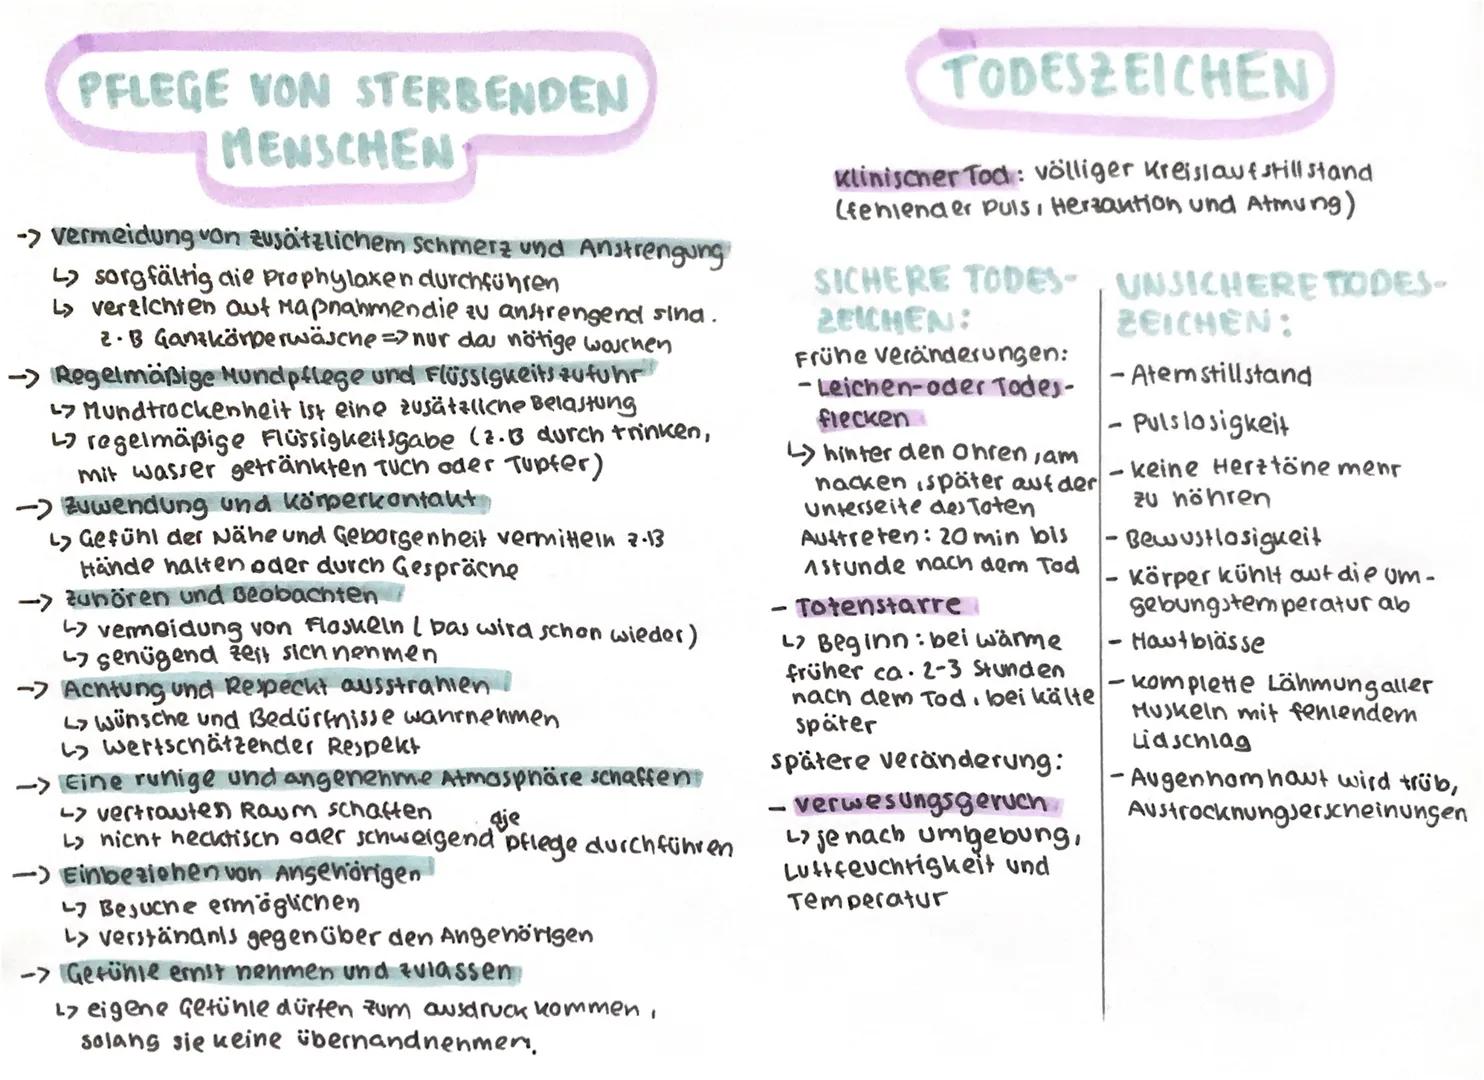 PFLEGE VON STERBENDEN
MENSCHEN
-> Vermeidung von zusätzlichem Schmerz und Anstrengung
↳ sorgfältig die Prophylaxen durchführen
↳ verzichten auf Maßnahmen die zu anstrengend sind.
z.B Ganzkörperwäsche => nur das nötige waschen
-> Regelmäßige Mundpflege und Flüssigkeitszufuhr
↳ Mundtrockenheit ist eine zusätzliche Belastung
↳ regelmäßige Flüssigkeitsgabe (z.B durch trinken,
mit wasser getränkten Tuch oder Tupfer)
-> Zuwendung und Körperkontakt
↳ Gefühl der Nähe und Geborgenheit vermitteln z.B
Hände halten oder durch Gespräche
-> Zuhören und Beobachten
↳ vermeidung von Floskeln (Das wird schon wieder)
↳ genügend Zeit sich nehmen
-> Achtung und Respeckt ausstrahlen
↳ Wünsche und Bedürfnisse wahrnehmen
↳ Wertschätzender Respekt
-> Eine ruhige und angenehme Atmosphäre schaffen
↳ vertrauten Raum schaffen
↳ nicht hecktisch oder schweigend die Pflege durchführen
-> Einbeziehen von Angehörigen
↳ Besuche ermöglichen
↳ verständnis gegenüber den Angehörigen
-> Gefühle ernst nehmen und zulassen
↳ eigene Gefühle dürfen zum ausdruck kommen,
solang sie keine überhandnehmen.
TODESZEICHEN
Klinischer Tod: völliger Kreislaufstillstand
(fehlender Puls, Herzaktion und Atmung)
SICHERE TODES-
ZEICHEN:
Frühe Veränderungen:
- Leichen- oder Todes-
flecken
↳ hinter den Ohren, am
nacken, später auf der
unterseite des Toten
Auftreten: 20 min bis
1 stunde nach dem Tod
- Totenstarre
↳ Beginn: bei wärme
früher ca. 2-3 Stunden
nach dem Tod, bei kälte
später
spätere veränderung:
- Verwesungsgeruch
↳ je nach umgebung,
Luftfeuchtigkeit und
Temperatur
UNSICHERE TODES-
ZEICHEN:
- Atemstillstand
- Pulslosigkeit
- keine Herztöne mehr
zu höhren
- Bewustlosigkeit
- Körper kühlt auf die um-
gebungstemperatur ab
- Hautblässe
- komplette Lähmung aller
Muskeln mit fehlendem
Lidschlag
- Augenhornhaut wird trüb,
Austrocknungserscheinungen